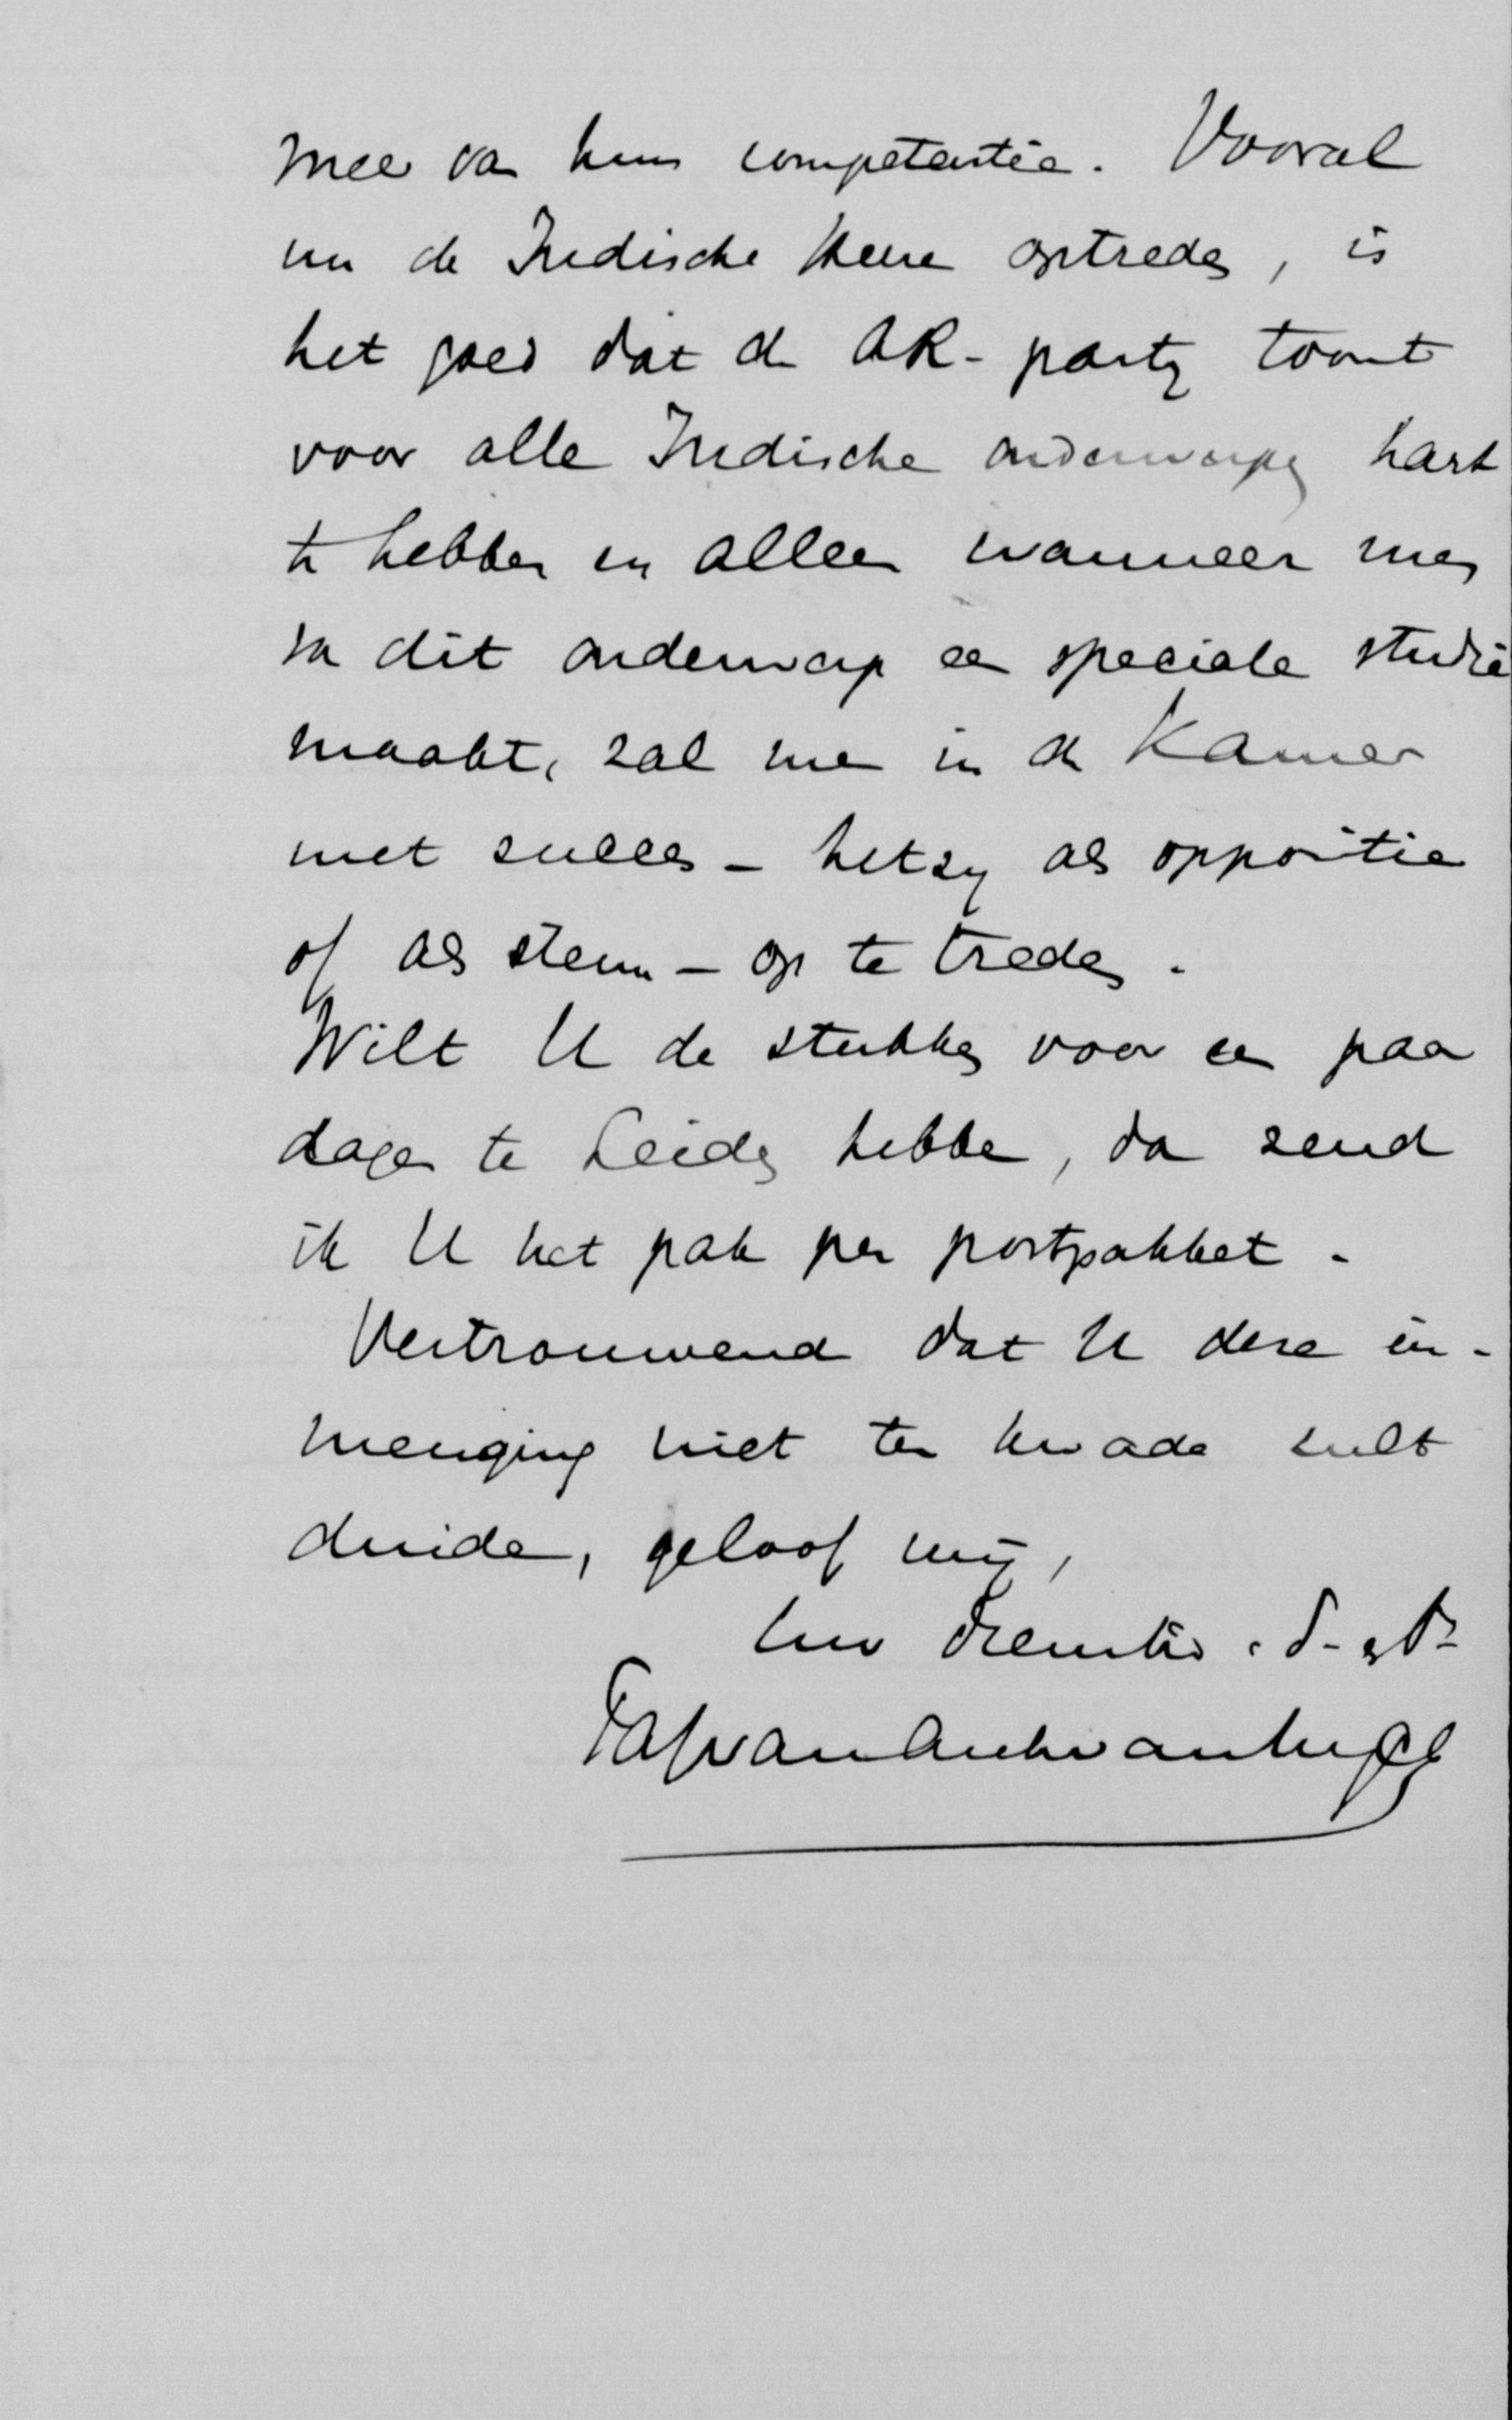 meer van hun competentie. Vooral
nu de Indische Heeren optreden, is
het goed dat de AR-party toont
voor alle Indische onderwerpen hart
te hebben en alleen wanneer men
van dit onderwerp een speciale studie
maakt, zal men in de Kamer
met succes - hetzy als oppositie
of als steun - op te treden.
Wilt U de stukken voor een paar
dagen te Leiden hebben, dan zend
ik U het pak per postpakket.
Vertrouwend dat U deze in-
menging niet ten kwade zult
duiden, geloof mij,
Uw